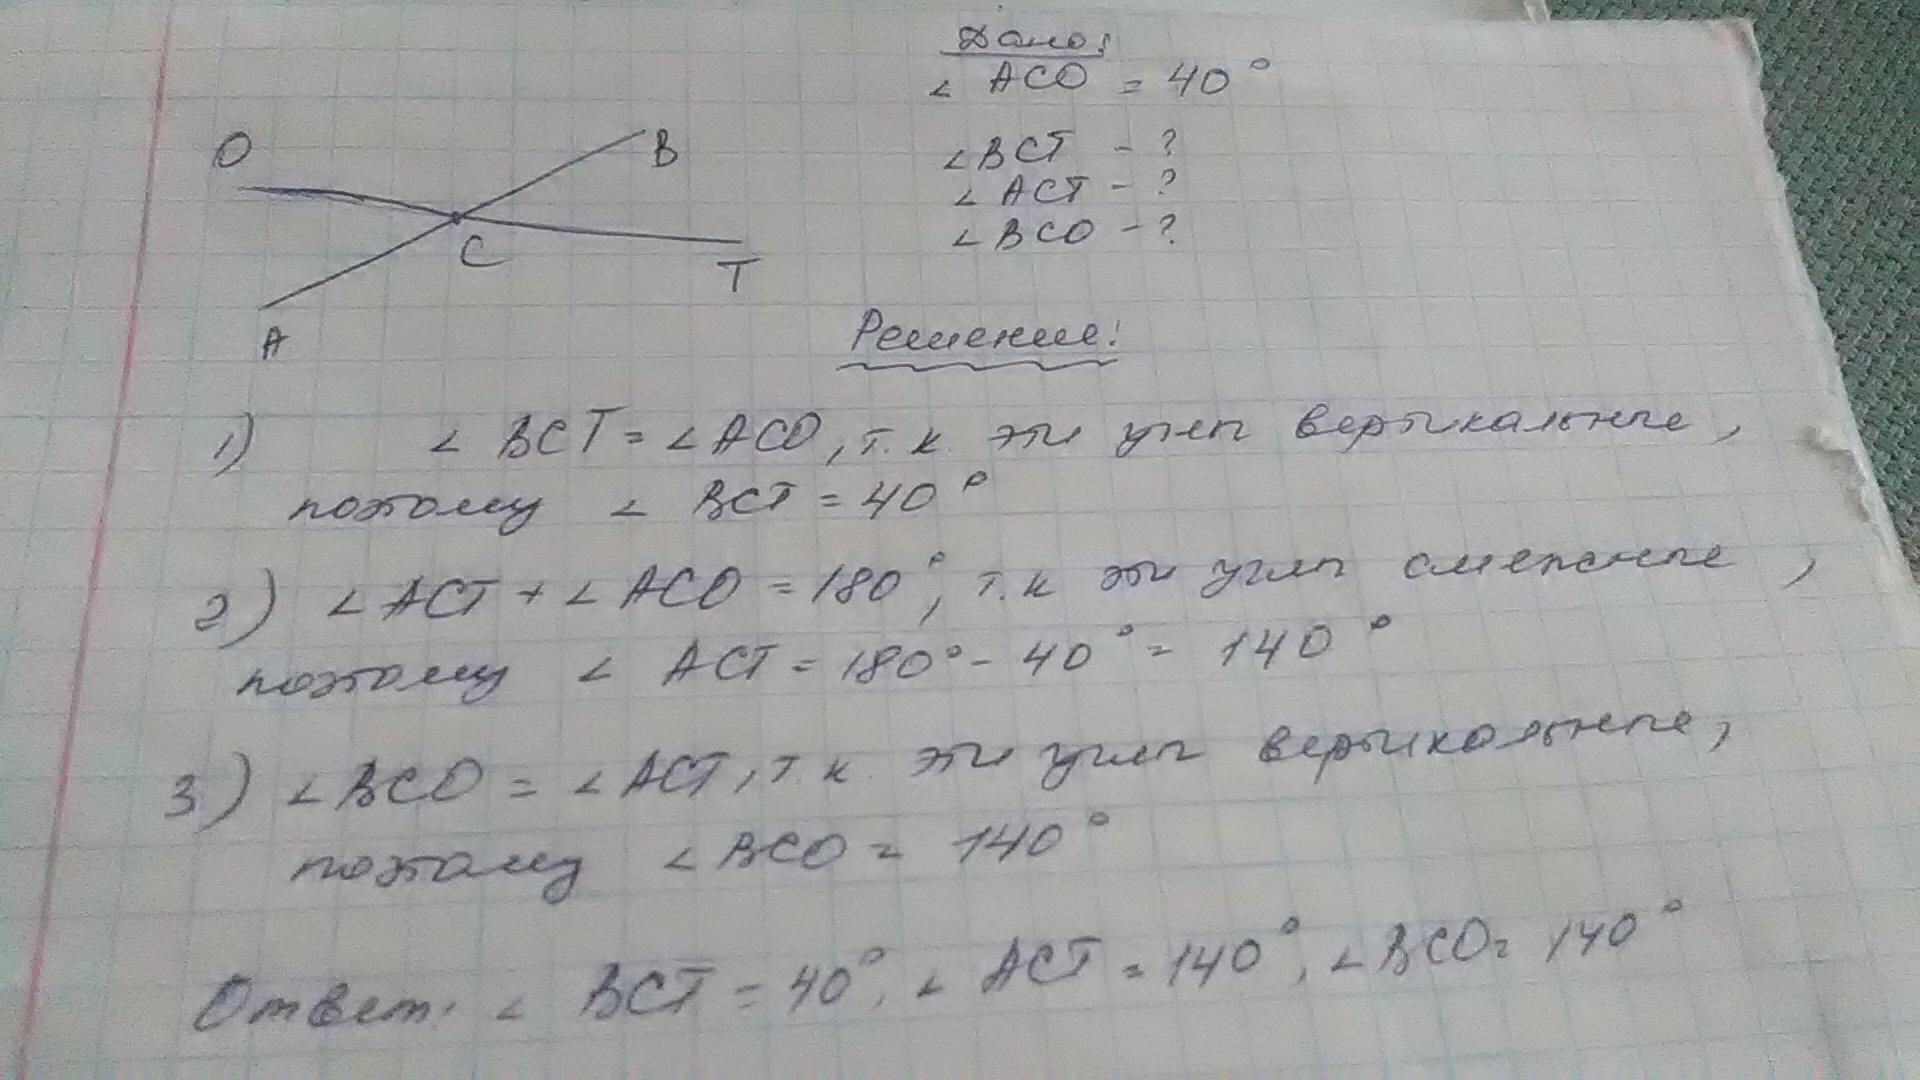 Дано:
∠ ACO = 40°
O
B
∠BCT - ?
∠ ACT - ?
∠ BCO - ?
C
T
A
Решение:
1) ∠ BCT = ∠ ACO, т.к. эти углы вертикальные,
поэтому ∠ BCT = 40°
2) ∠ ACT + ∠ ACO = 180°, т.к эти углы смежные,
поэтому ∠ ACT = 180° - 40° = 140°
3) ∠ BCO = ∠ ACT, т.к. эти углы вертикальные,
поэтому ∠ BCO = 140°
Ответ: ∠ BCT = 40°, ∠ ACT = 140°, ∠ BCO = 140°